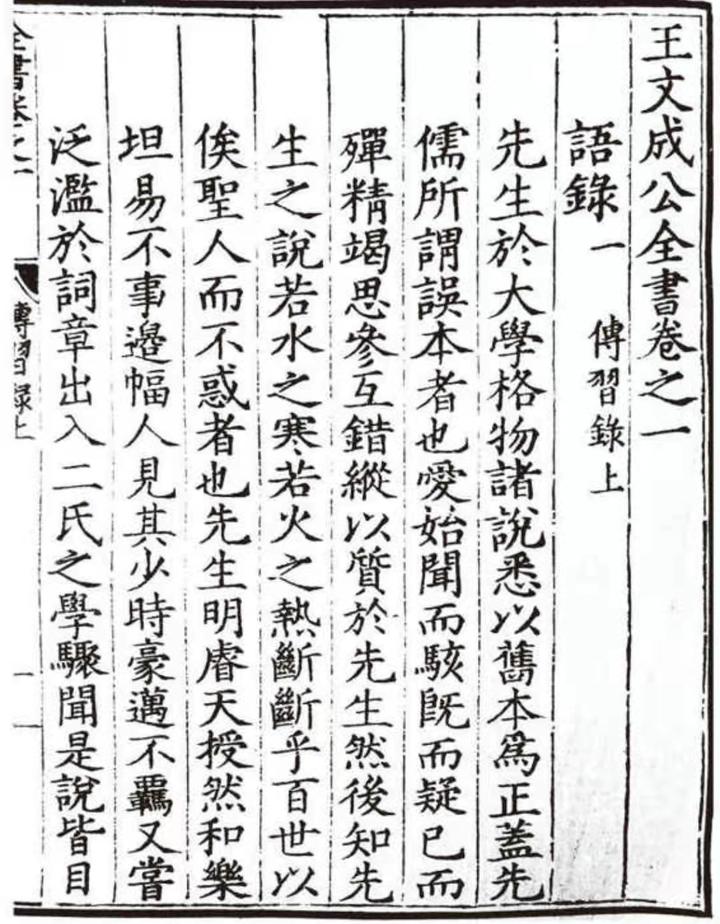 王文成公全書卷之一
語錄一　傳習錄上
先生於大學格物諸說悉以舊本爲正蓋先
儒所謂誤本者也愛始聞而駭旣而疑已而
殫精竭思參互錯縱以質於先生然後知先
生之說若水之寒若火之熱斷斷乎百世以
俟聖人而不惑者也先生明睿天授然和樂
坦易不事邊幅人見其少時豪邁不羈又嘗
泛濫於詞章出入二氏之學驟聞是說皆目
全書卷之一　傳習錄上　一